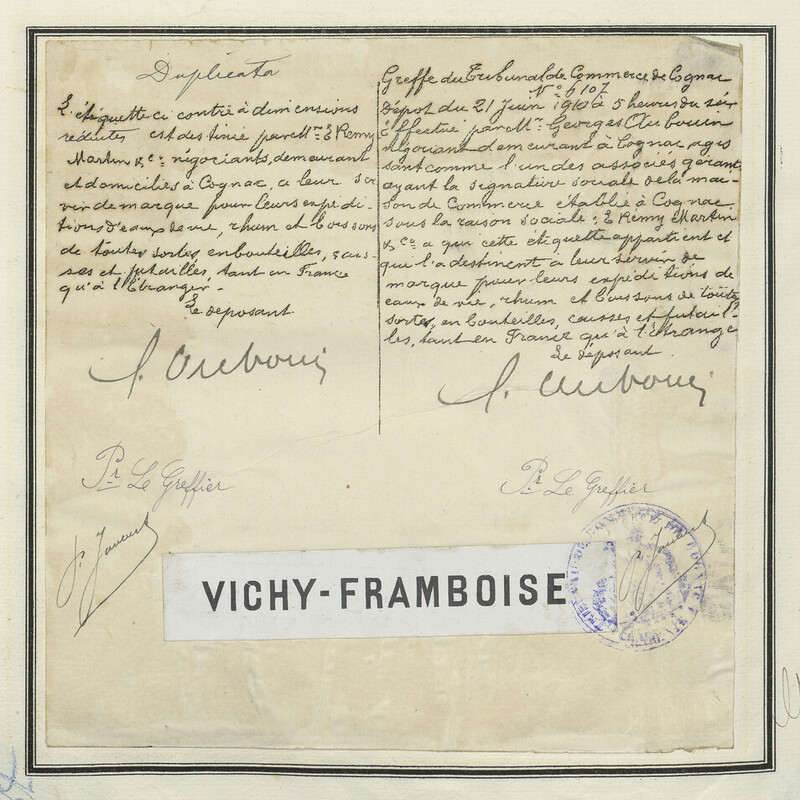 Duplicata
L'étiquette ci contre à dimensions
réduites est destinée par Mrs E. Remy
Martin & Cie négociants, demeurant
et domiciliés à Cognac, a leur ser
vir de marque pour leurs expédi-
tions d'eaux de vie, rhum et boissons
de toutes sortes, en bouteilles, cais-
ses et futailles, tant en France
qu'à l'Etranger.
Le deposant.
Pr Le Greffier
Greffe du Tribunal de Commerce de Cognac
No 6107
Dépot du 21 Juin 1910 à 5 heures du soir
Effectué par Mr. Georges Aubouin
négociant demeurant à Cognac, agis
sant comme l'un des associés gérant,
ayant la signature sociale de la mai-
son de Commerce établie à Cognac
sous la raison sociale: E. Remy Martin
& Co a qui cette étiquette appartient et
qui l'a destinent a leur servir de
marque pour leurs expéditions de
eaux de vie, rhum et boissons de toute
sortes, en bouteilles, caisses et futail-
les, tant en France qu'à l'étrange
Le déposant.
Pr Le Greffier
VICHY-FRAMBOISE